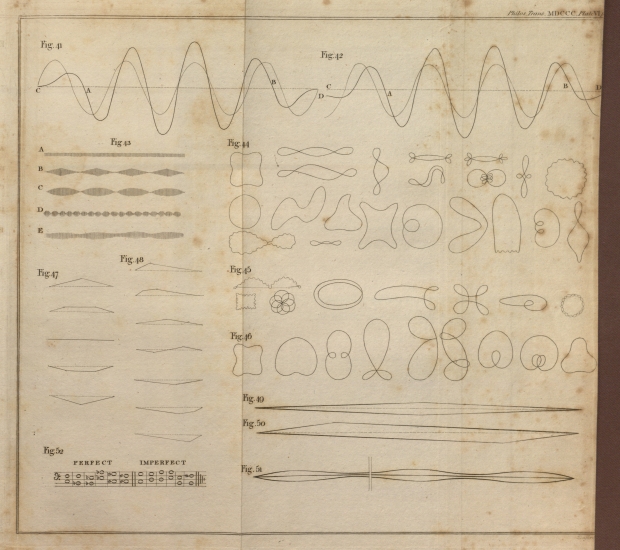 Philos. Trans. MDCCC. Plate VI
Fig. 41
C
A
B
D
Fig. 42
C
A
B
D
Fig. 43
A
B
C
D
E
Fig. 44
Fig. 45
Fig. 46
Fig. 47
Fig. 48
Fig. 49
Fig. 50
Fig. 51
Fig. 52
PERFECT IMPERFECT